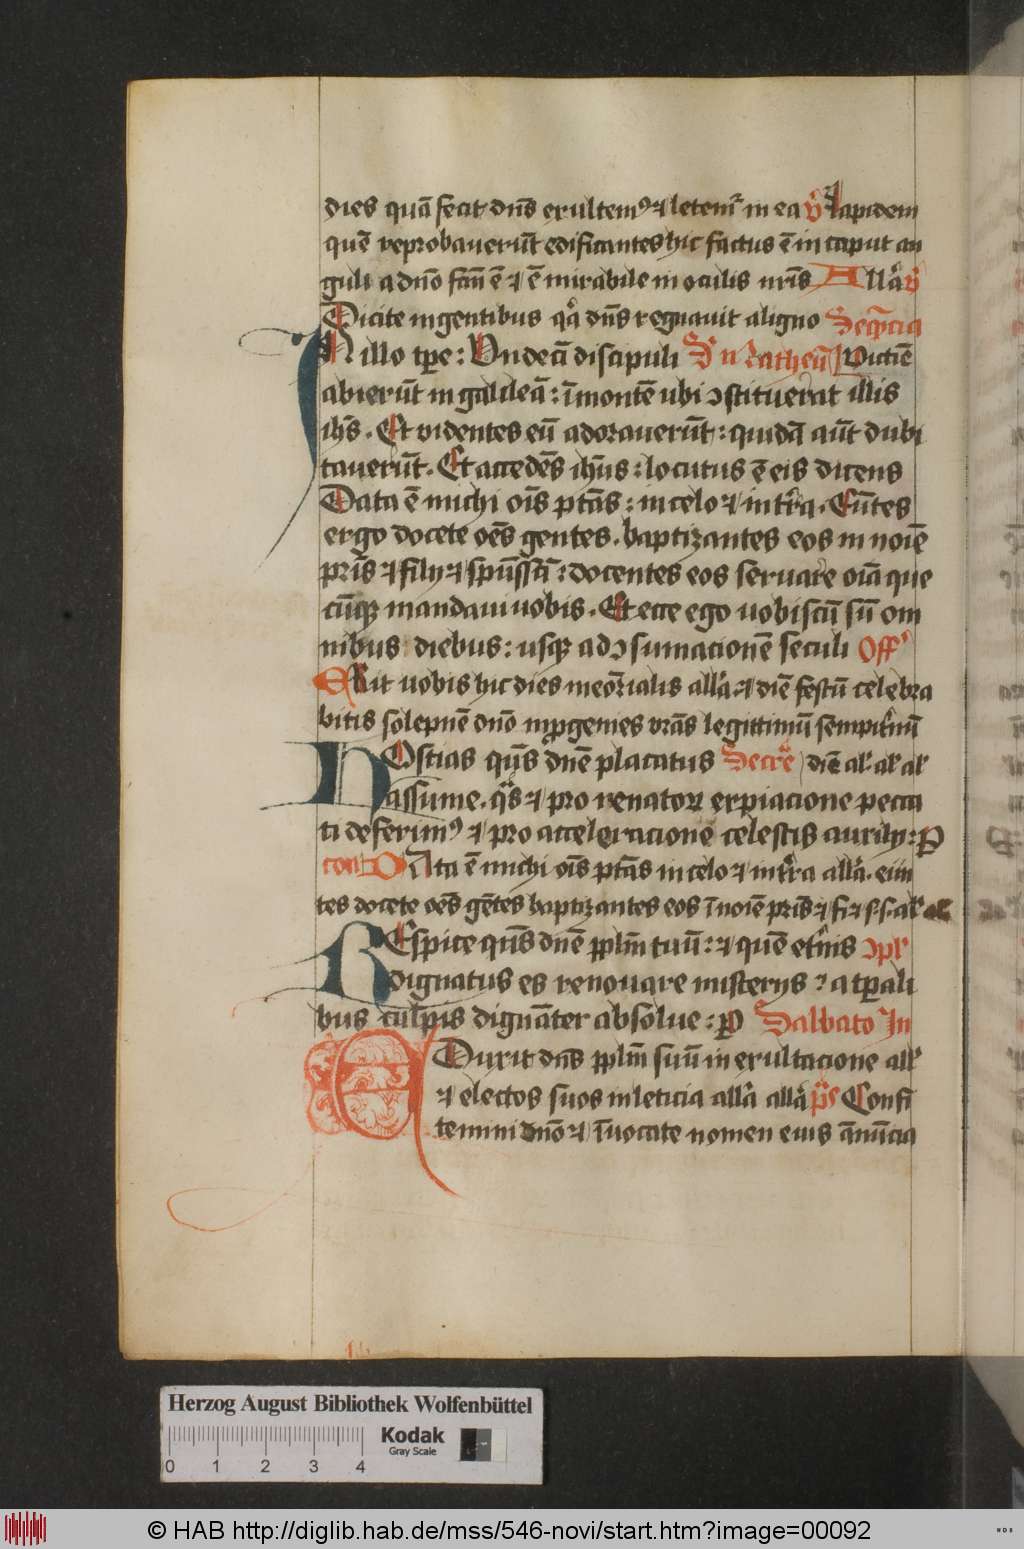 dies quā fecit dn̄s exultemꝯ ⁊ letemr̄ in ea v̄ Lapidem
quē reprobauerūt edificantes hic factus ē in caput an
guli a dn̄o fcm̄ ē ⁊ ē mirabile in oculis nr̄is Allā v̄
Dicite in gentibus qꝛ dn̄s regnauit a ligno Seqūcia
IN illo tpe: Vndecī discipuli Sn̄ Matheū
abierūt in galileā: ī montē ubi ꝯstituerat illis
ih̄s. Et videntes eū adorauerūt: quidā aūt dubi
tauerūt. Et accedēs ih̄us: locutus ē eis dicens
Data ē michi oīs pt̄as: in celo ⁊ in tr̄a. Eūtes
ergo docete oēs gentes. baptizantes eos in noīe
pr̄is ⁊ filij ⁊ spūssctī: docentes eos seruare oīa que
cūqꝫ mandaui uobis. Et ecce ego uobiscū sū om
nibus diebus: usqꝫ ad ꝯsumacionē seculi Off̄
ERit uobis hic dies meorialis allā ⁊ diē festū celebra
bitis solepnē dn̄o in ꝓgenies vr̄as legittimū sempitn̄ū
HOstias qs̄ dn̄e placatus Secre diē al' al' al'
assume. qs̄ ⁊ pro renatoꝝ expiacione pecca
ti deferimꝯ ⁊ pro acceleracione celestis auxilij: P
con DAta ē michi oīs pt̄as in celo ⁊ in tr̄a allā. eun
tes docete oēs gētes baptizantes eos ī noīe pr̄is ⁊ fi ⁊ s. s. al' al'
REspice qs̄ dn̄e pplm̄ tuū: ⁊ quē etn̄is ꝯpl'
dignatus es renouare misterijs: a tp̄ali
bus culpis dignāter absolue: ꝑ Sabbato In
EDuxit dn̄s pplm̄ suū in exultacione all'
⁊ electos suos in leticia allā allā ps̄ Confi
temini dn̄o ⁊ īuocate nomen eius ānūcia
Herzog August Bibliothek Wolfenbüttel
Kodak
Gray Scale
0 1 2 3 4
© HAB http://diglib.hab.de/mss/546-novi/start.htm?image=00092